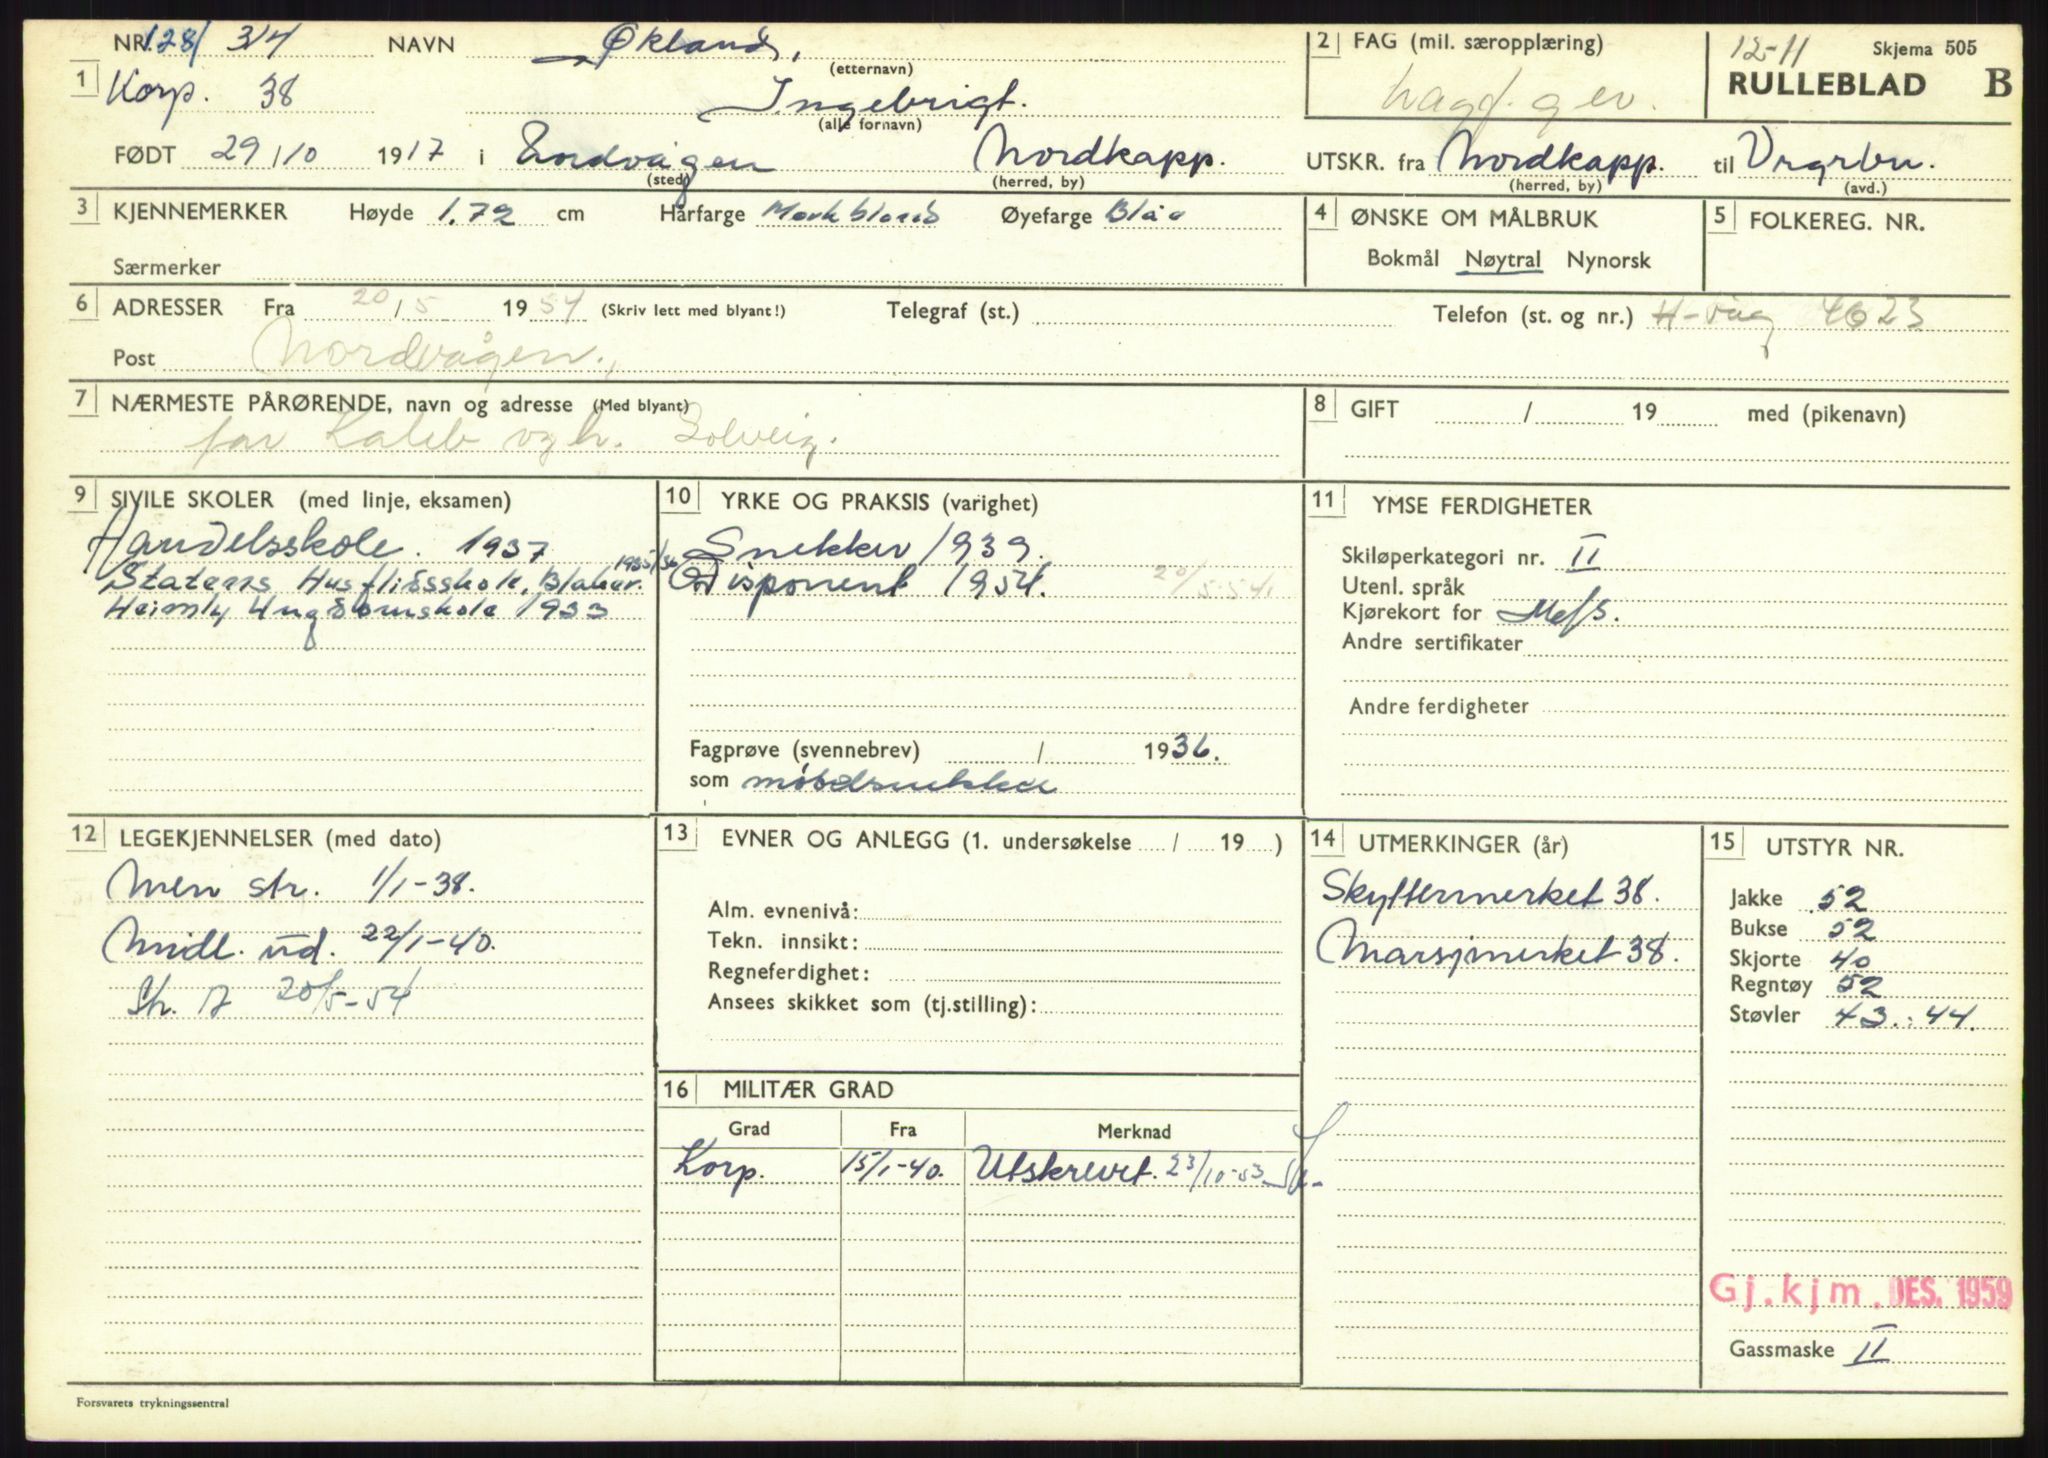 NR. 128/ 314 NAVN Økland, (etternavn)
1 Korp. 38 Ingebrigt. (alle fornavn)
FØDT 29/10 1917 i Nordvågen (sted) Nordkapp. (herred, by)
2 FAG (mil. særopplæring)
Lagf. gev.
12-11 Skjema 505
RULLEBLAD B
UTSKR. fra Nordkapp. (herred, by) til Vrgrbn. (avd.)
3 KJENNEMERKER Høyde 1.72 cm Hårfarge Mørkblond Øyefarge Blåe
Særmerker
4 ØNSKE OM MÅLBRUK
Bokmål Nøytral Nynorsk
5 FOLKEREG. NR.
6 ADRESSER Fra 20/5 1954 (Skriv lett med blyant!) Telegraf (st.) Telefon (st. og nr.) H-våg 4623
Post Nordvågen.
7 NÆRMESTE PÅRØRENDE, navn og adresse (Med blyant)
far Kaleb og h. Solveig.
8 GIFT / 19 med (pikenavn)
9 SIVILE SKOLER (med linje, eksamen)
Handelsskole. 1937
Statens Husflidsskole, Blaker. 1935/36
Heimly Ungdomskole 1933
10 YRKE OG PRAKSIS (varighet)
Snekker 1939.
Disponent 1954. 20/5-54.
Fagprøve (svennebrev) / 1936.
som møbelsnekker
11 YMSE FERDIGHETER
Skiløperkategori nr. II
Utenl. språk
Kjørekort for Mc/S.
Andre sertifikater
Andre ferdigheter
12 LEGEKJENNELSER (med dato)
Men str. 1/1-38.
Midl. ud. 22/1-40.
Str. A 20/5-54
13 EVNER OG ANLEGG (1. undersøkelse / 19 )
Alm. evnenivå:
Tekn. innsikt:
Regneferdighet:
Ansees skikket som (tj.stilling):
14 UTMERKINGER (år)
Skyttermerket 38.
Marsjmerket 38.
15 UTSTYR NR.
Jakke 52
Bukse 52
Skjorte 40
Regntøy 52
Støvler 43.:44.
Gj.kjm. DES. 1959
Gassmaske II
16 MILITÆR GRAD
Grad Fra Merknad
Korp. 15/1-40. Utskrevet. 23/10-53
Forsvarets trykningssentral